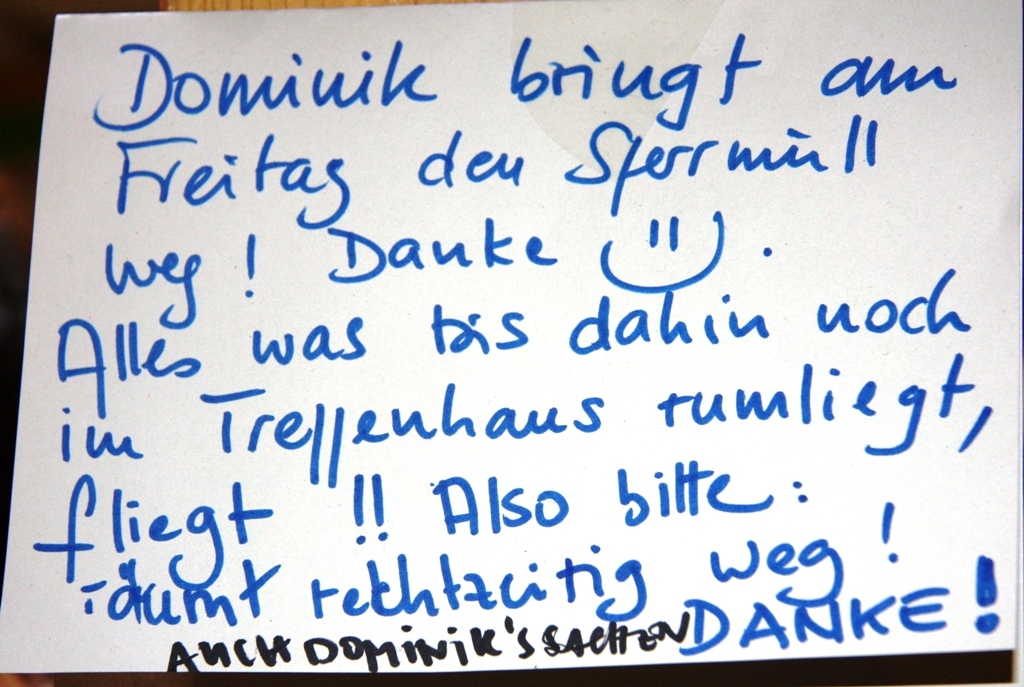 Dominik bringt am
Freitag den Sperrmüll
weg! Danke .
Alles was bis dahin noch
im Treppenhaus rumliegt,
fliegt!! Also bitte:
räumt rechtzeitig weg!
AUCH DOMINIK'S SACHEN DANKE!